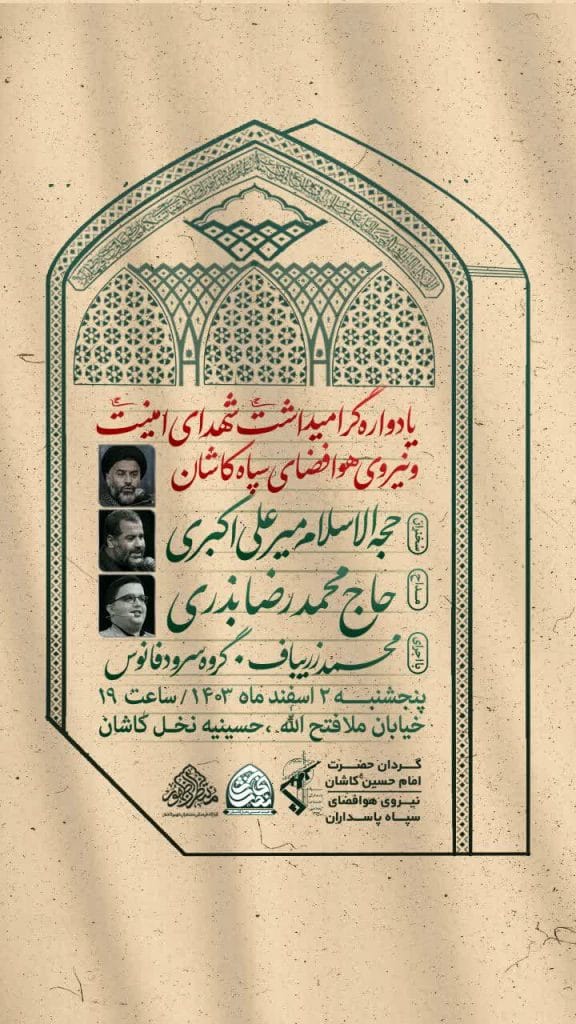 یادواره گرامیداشت شهدای امنیت
و نیروی هوافضای سپاه کاشان
سخنران
حجه الاسلام میرعلی اکبری
مداح
حاج محمدرضا بذری
با اجرای
محمد زریباف • گروه سرود فانوس
پنجشنبه ۲ اسفند ماه ۱۴۰۳ / ساعت ۱۹
خیابان ملا فتح الله، حسینیه نخل کاشان
گردان حضرت
امام حسین کاشان
نیروی هوافضای
سپاه پاسداران